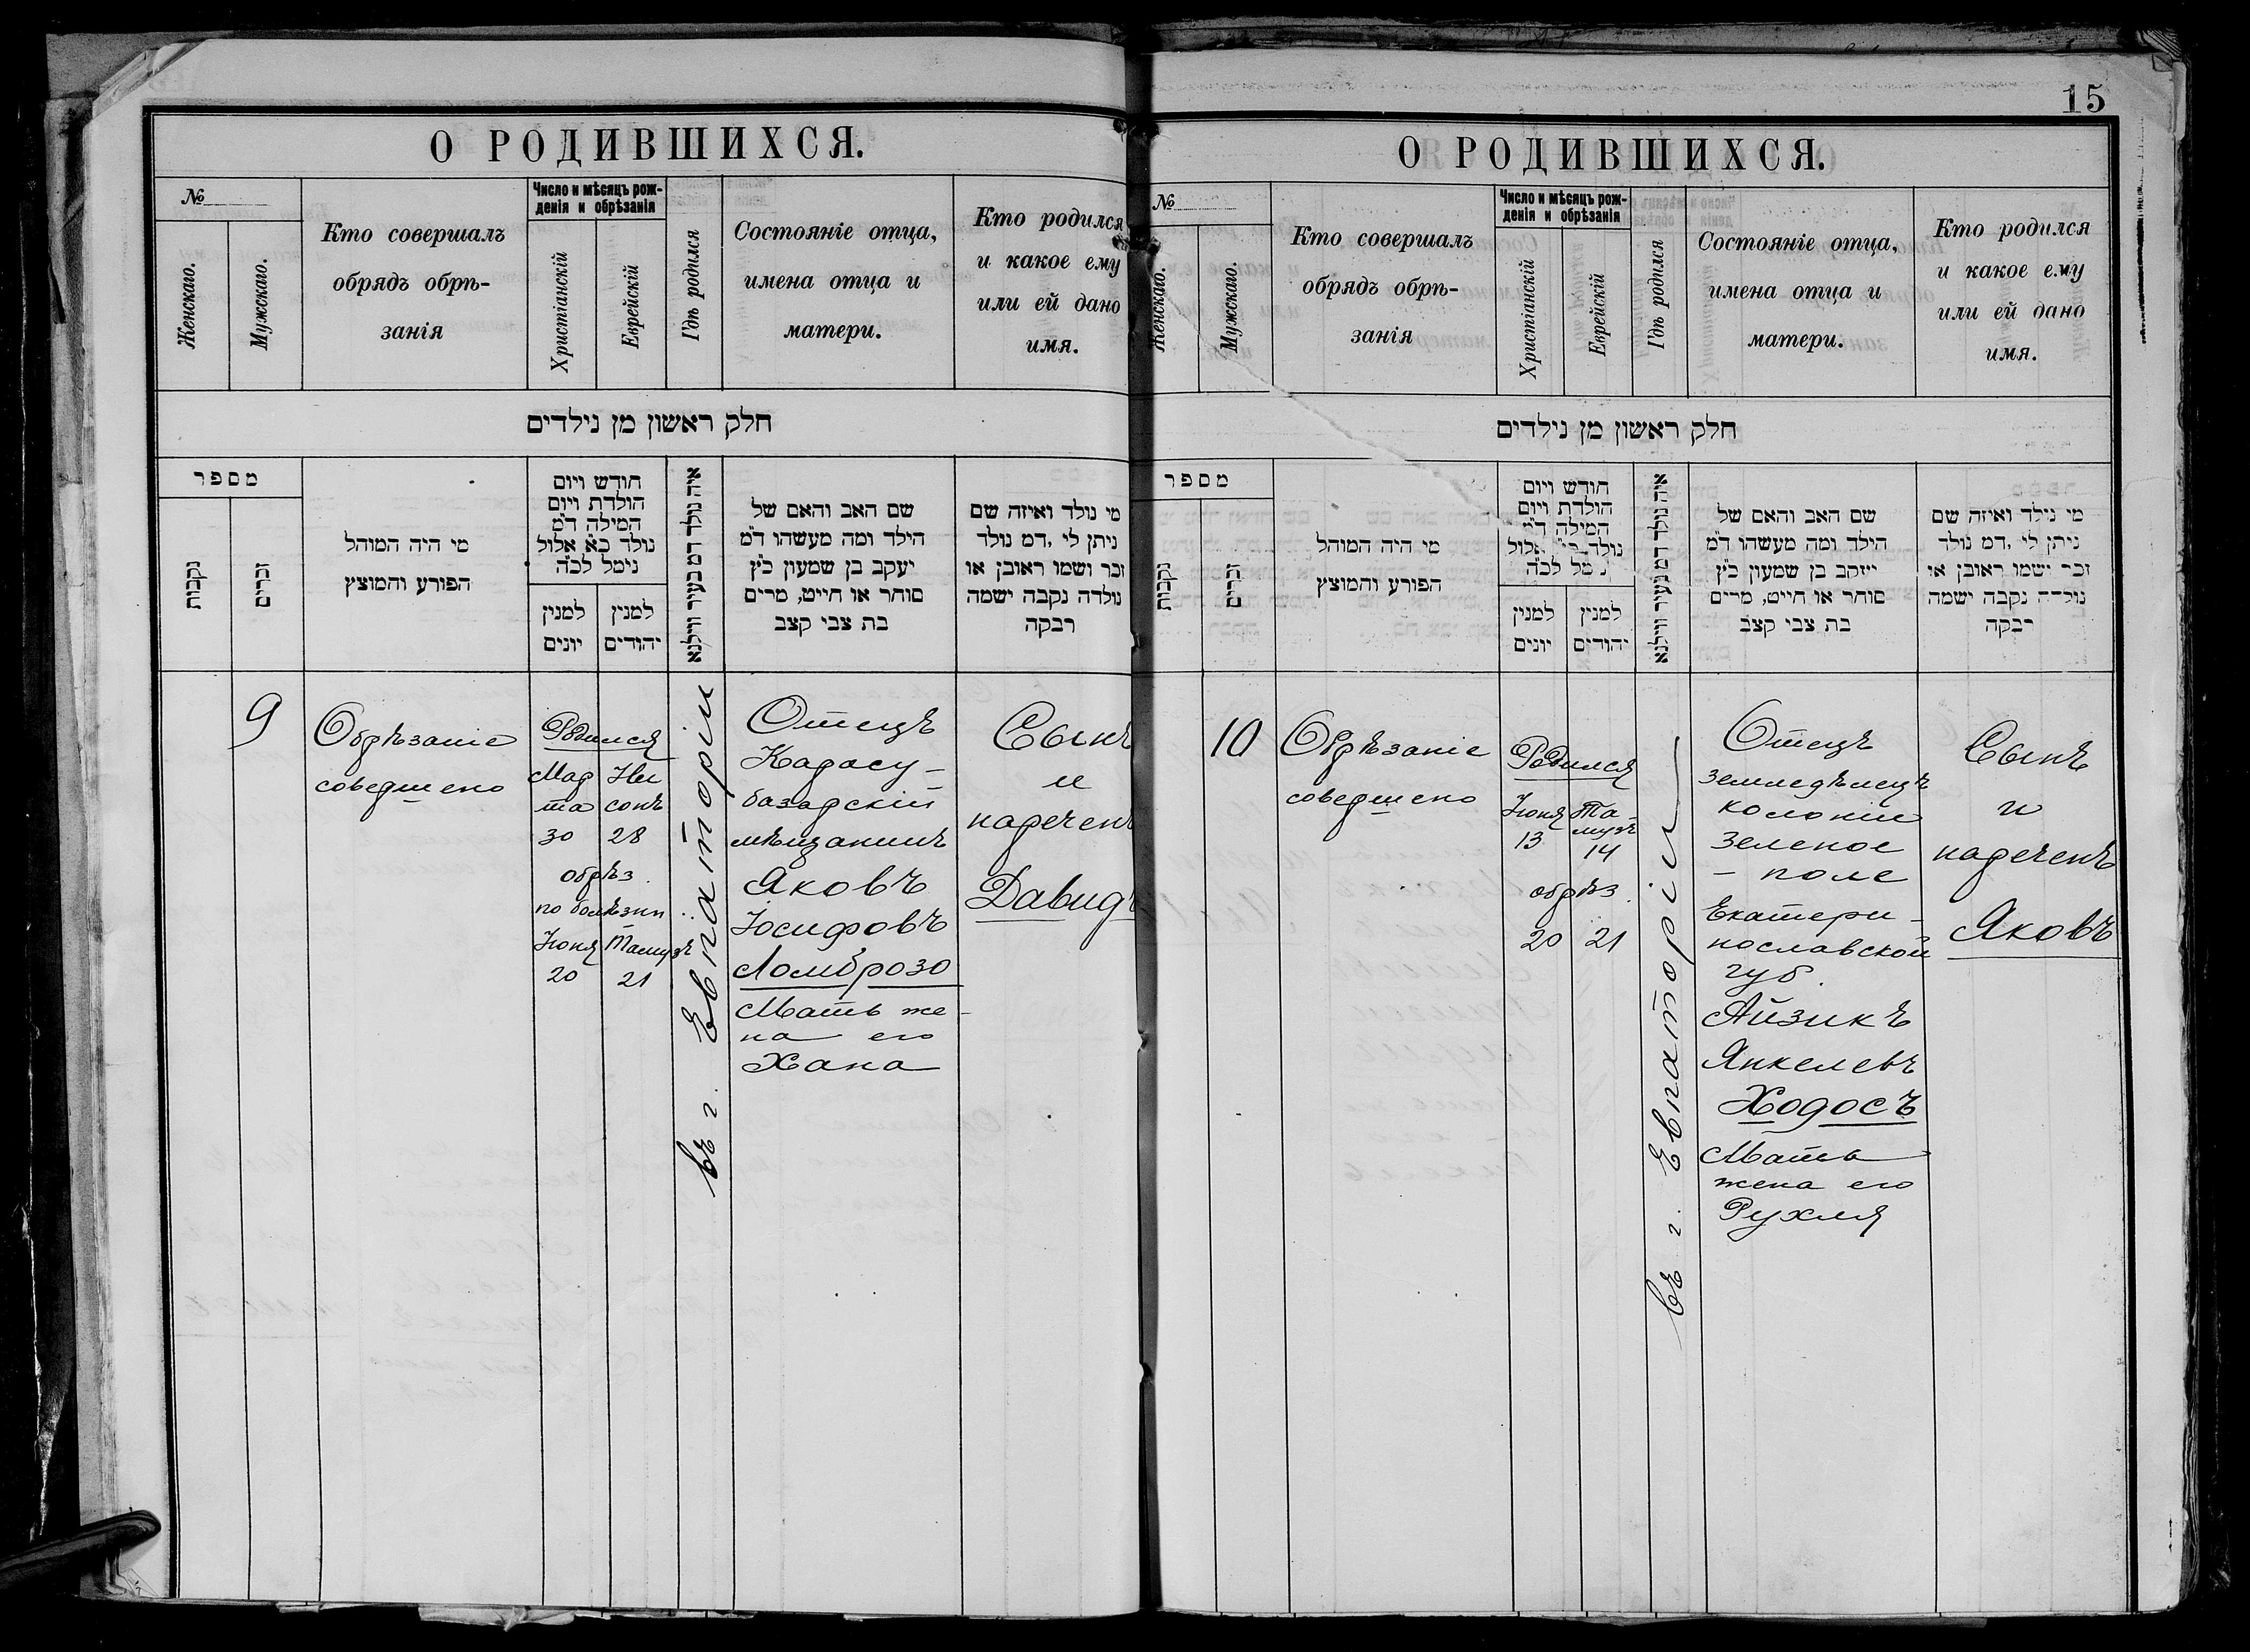 О РОДИВШИХСЯ.
№
Женскаго.
Мужскаго.
Кто совершалъ
обрядъ обрѣ-
занія
Число и мѣсяцъ рож-
денія и обрѣзанія
Христіанскій
Еврейскій
Гдѣ родился
Состояніе отца,
имена отца и
матери.
Кто родился
и какое ему
или ей дано
имя.
חלק ראשון מן נילדים
מספר
נקבות
זכרים
מי היה המוהל
הפורע והמוצץ
חודש ויום
הולדת ויום
המילה ד״מ
נולד כ״א אלול
נימל לכ״ה
למנין
יונים
למנין
יהודים
איה נולד דמ בעיר ווילנא
שם האב והאם של
הילד ומה מעשהו ד״מ
יעקב בן שמעון כ״ץ
סוחר או חייט, מרים
בת צבי קצב
מי נולד ואיזה שם
ניתן לי ,דמ נולד
זכר ושמו ראובן או
נולדה נקבה ישמה
רבקה
9
Обрѣзаніе
совершено
Родился
Мар
та
30
Ни
сонъ
28
обрѣз.
по болѣзни
Іюня
20
Тамузъ
21
въ г. Евпаторіи
Отецъ
Карасу-
базарскій
мѣщанинъ
Яковъ
Іосифовъ
Ломброзо
Мать же-
на его
Хана
Сынъ
и
нареченъ
Давидъ
15
О РОДИВШИХСЯ.
№
Женскаго.
Мужскаго.
Кто совершалъ
обрядъ обрѣ-
занія
Число и мѣсяцъ рож-
денія и обрѣзанія
Христіанскій
Еврейскій
Гдѣ родился
Состояніе отца,
имена отца и
матери.
Кто родился
и какое ему
или ей дано
имя.
חלק ראשון מן נילדים
מספר
נקבות
זכרים
מי היה המוהל
הפורע והמוצץ
חודש ויום
הולדת ויום
המילה ד״מ
נולד כ״א אלול
נימל לכ״ה
למנין
יונים
למנין
יהודים
איה נולד דמ בעיר ווילנא
שם האב והאם של
הילד ומה מעשהו ד״מ
יעקב בן שמעון כ״ץ
סוחר או חייט, מרים
בת צבי קצב
מי נילד ואיזה שם
ניתן לי ,דמ נולד
זכר ישמו ראובן או
נולדה נקבה ישמה
רבקה
10
Обрѣзаніе
совершено
Родился
Іюня
13
Та-
музъ
14
обрѣз.
20
21
въ г. Евпаторіи
Отецъ
земледѣлецъ
колоніи
Зеленое
- поле
Екатери-
нославской
губ.
Айзикъ
Янкелевъ
Ходосъ
Мать
жена его
Рухля
Сынъ
и
нареченъ
Яковъ